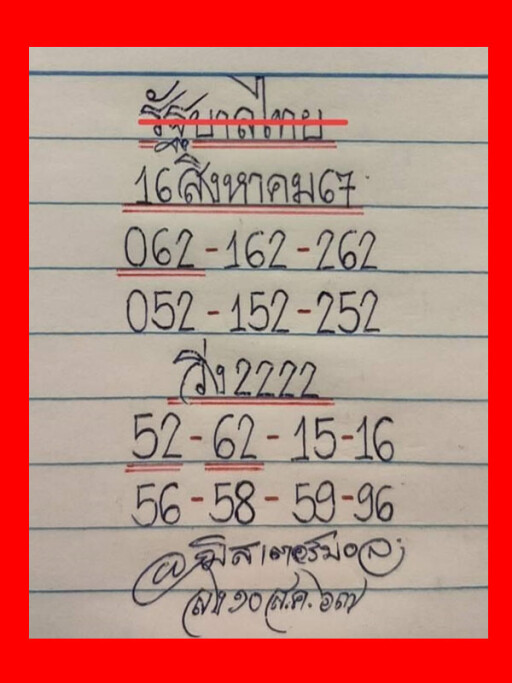 รัฐบาลไทย
16สิงหาคม67
062-162-262
052-152-252
วิ่ง2222
52-62-15-16
56-58-59-96
ลง ๑๐ ส.ค. ๖๗